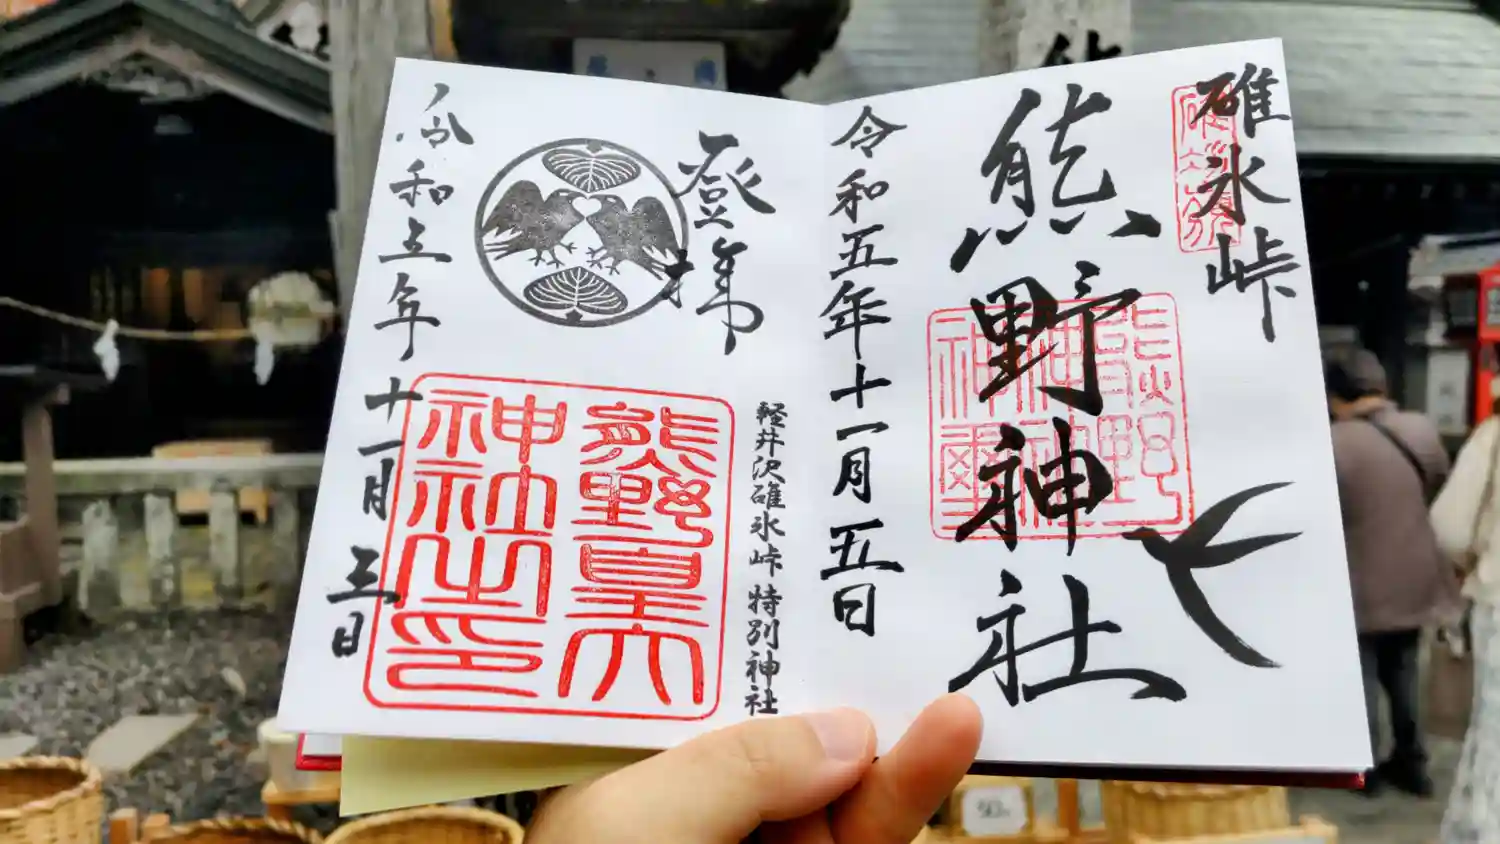 碓氷峠
碓氷嶺
熊野神社
熊野
神社
神璽
令和五年十一月五日
登拝
軽井沢碓氷峠 特別神社
熊野皇大
神社之印
令和五年 十一月 三日
熊